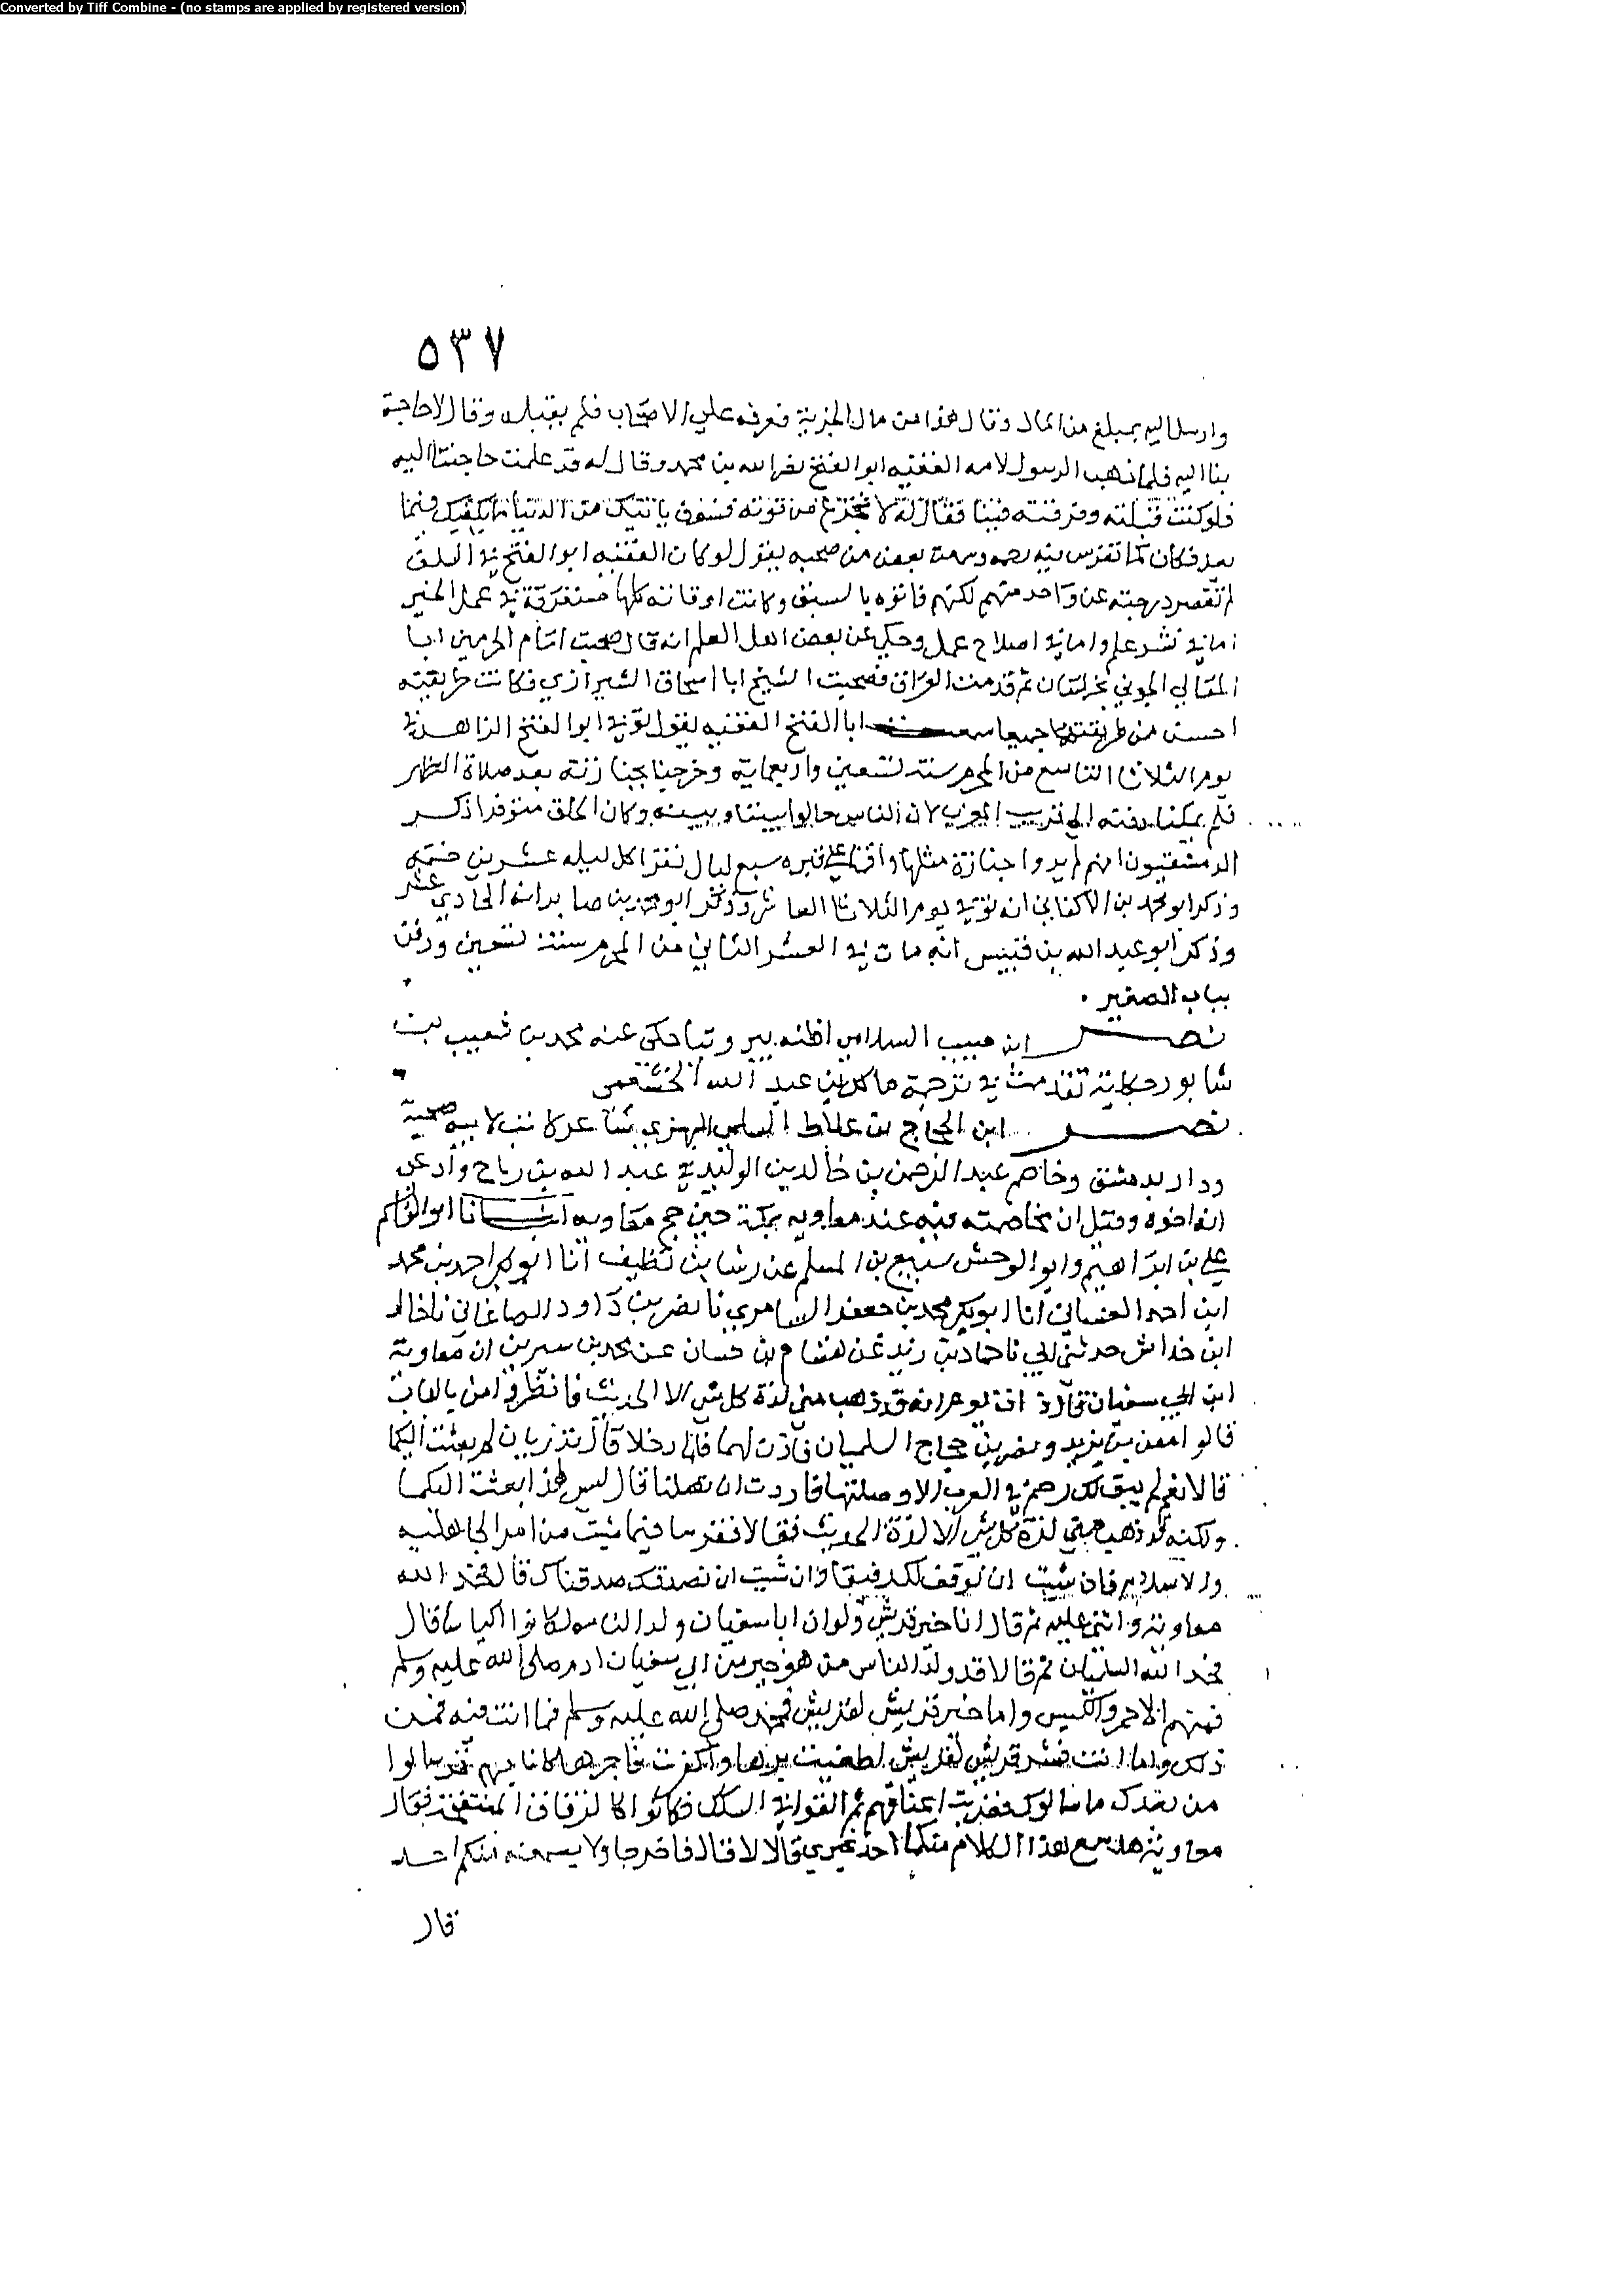 Converted by Tiff Combine - (no stamps are applied by registered version)
٥٣٧
وارسل اليه بمبلغ من المال وقال هذا من مال الجزية ففرقه على الاصحاب فلم يقبله وقال لا حاجة
بنا اليه فلما ذهب الرسول لامه الفقيه ابو الفتح نصر الله بن محمد وقال له قد علمت حاجتنا اليه
فلو كنت قبلته وفرقته فينا فقال له لا تجزع من فوته فسوف ياتيك من الدنيا ما يكفيك فيما
بعد فكان كما تفرس فيه رحمه وسمعت بعض من صحبه يقول لو كان الفقيه ابو الفتح في السلف
لم تقصر درجته عن واحد منهم لكنهم فاتوه بالسبق وكانت اوقاته كلها مستغرقة في عمل الخير
اما في نشر علم واما في اصلاح عمل وحكي عن بعض اهل العلم انه قال صحبت امام الحرمين ابا
المعالي الجويني بخراسان ثم قدمت العراق فصحبت الشيخ ابا اسحاق الشيرازي فكانت طريقته
احسن من طريقتهما جميعا سمعت ابا الفتح الفقيه يقول توفي ابو الفتح الزاهد في
يوم الثلاثا التاسع من المحرم سنة تسعين واربعماية وخرجنا بجنازته بعد صلاة الظهر
فلم يمكنا دفنه الى قريب المغرب لان الناس حالوا بيننا وبينه وكان الخلق متوفرا ذكر
الدمشقيون انهم لم يروا جنازة مثلها واقمنا على قبره سبع ليال نقرا كل ليله عشرين ختمه
وذكر ابو محمد بن الاكفاني انه توفي يوم الثلاثا العاشر وذكر ابو محمد بن صابر انه الحادي عشر
وذكر ابو عبد الله بن قبيس انه مات في العشر الثاني من المحرم سنة تسعين ودفن
بباب الصغير
نصر ابن حبيب السلامي اظنه بيروتيا حكى عنه محمد بن شعيب بن
شابور حكاية تقدمت في ترجمة مالك بن عبد الله الخثعمي
نصر ابن الحجاج بن علاط السلمي البهزي شاعر كانت لابيه صحبة
ودار بدمشق وخاصم عبد الرحمن بن خالد بن الوليد في عبد الله بن رباح وادعى
انه اخوه وقيل ان مخاصمته فيه عند معاويه بمكة حين حج معاويه انبانا ابو القاسم
علي بن ابراهيم وابو الوحش سبيع بن المسلم عن رشا بن نظيف انا ابو بكر احمد بن محمد
ابن احمد الغساني انا ابو بكر محمد بن جعفر السامري نا نصر بن داود الصاغاني نا خالد
ابن خداش حدثني ابي نا حماد بن زيد عن هشام بن حسان عن محمد بن سيرين ان معاوية
ابن ابي سفيان قال انه قد ذهب مني لذة كل شي الا الحديث فانظروا من بالباب
قالوا معن بن يزيد ونصر بن حجاج السلميان فاذن لهما فلما دخلا قال تدريان لم بعثت اليكما
قالا نعم لم يبق لك رحم في العرب الا وصلتها فاردت ان تصلنا قال ليس لهذا بعثت اليكما
ولكنه قد ذهب مني لذة كل شي الا لذة الحديث فقالا نفر سا فيما شيت من امر الجاهلية
والاسلام فان شيت ان نوقف لك وفيقا وان شيت ان نصدقك صدقناك قال فحمد الله
معاوية واثنى عليه ثم قال انا خير قريش ولو ان ابا سفيان ولد الناس لكانوا اكياسا قال
فحمد الله السلميان ثم قالا قد ولد الناس من هو خير من ابي سفيان ادم صلى الله عليه وسلم
فمنهم الاحمق والكيس واما خير قريش لقريش فمحمد صلى الله عليه وسلم فما انت منه فمن
ذلك واما انت فشر قريش لقريش اطغيت برها واكفرت فاجرها كانا بهم قد سالوا
من بعدك ما سالوك فضربت اعناقهم ثم القوا في السكك فكانوا كالزقاق المنتفخة فقال
معاوية هل سمع هذا الكلام منكما احد غيري قالا لا قال فاخرجا ولا يسمعنه منكم احد
قال